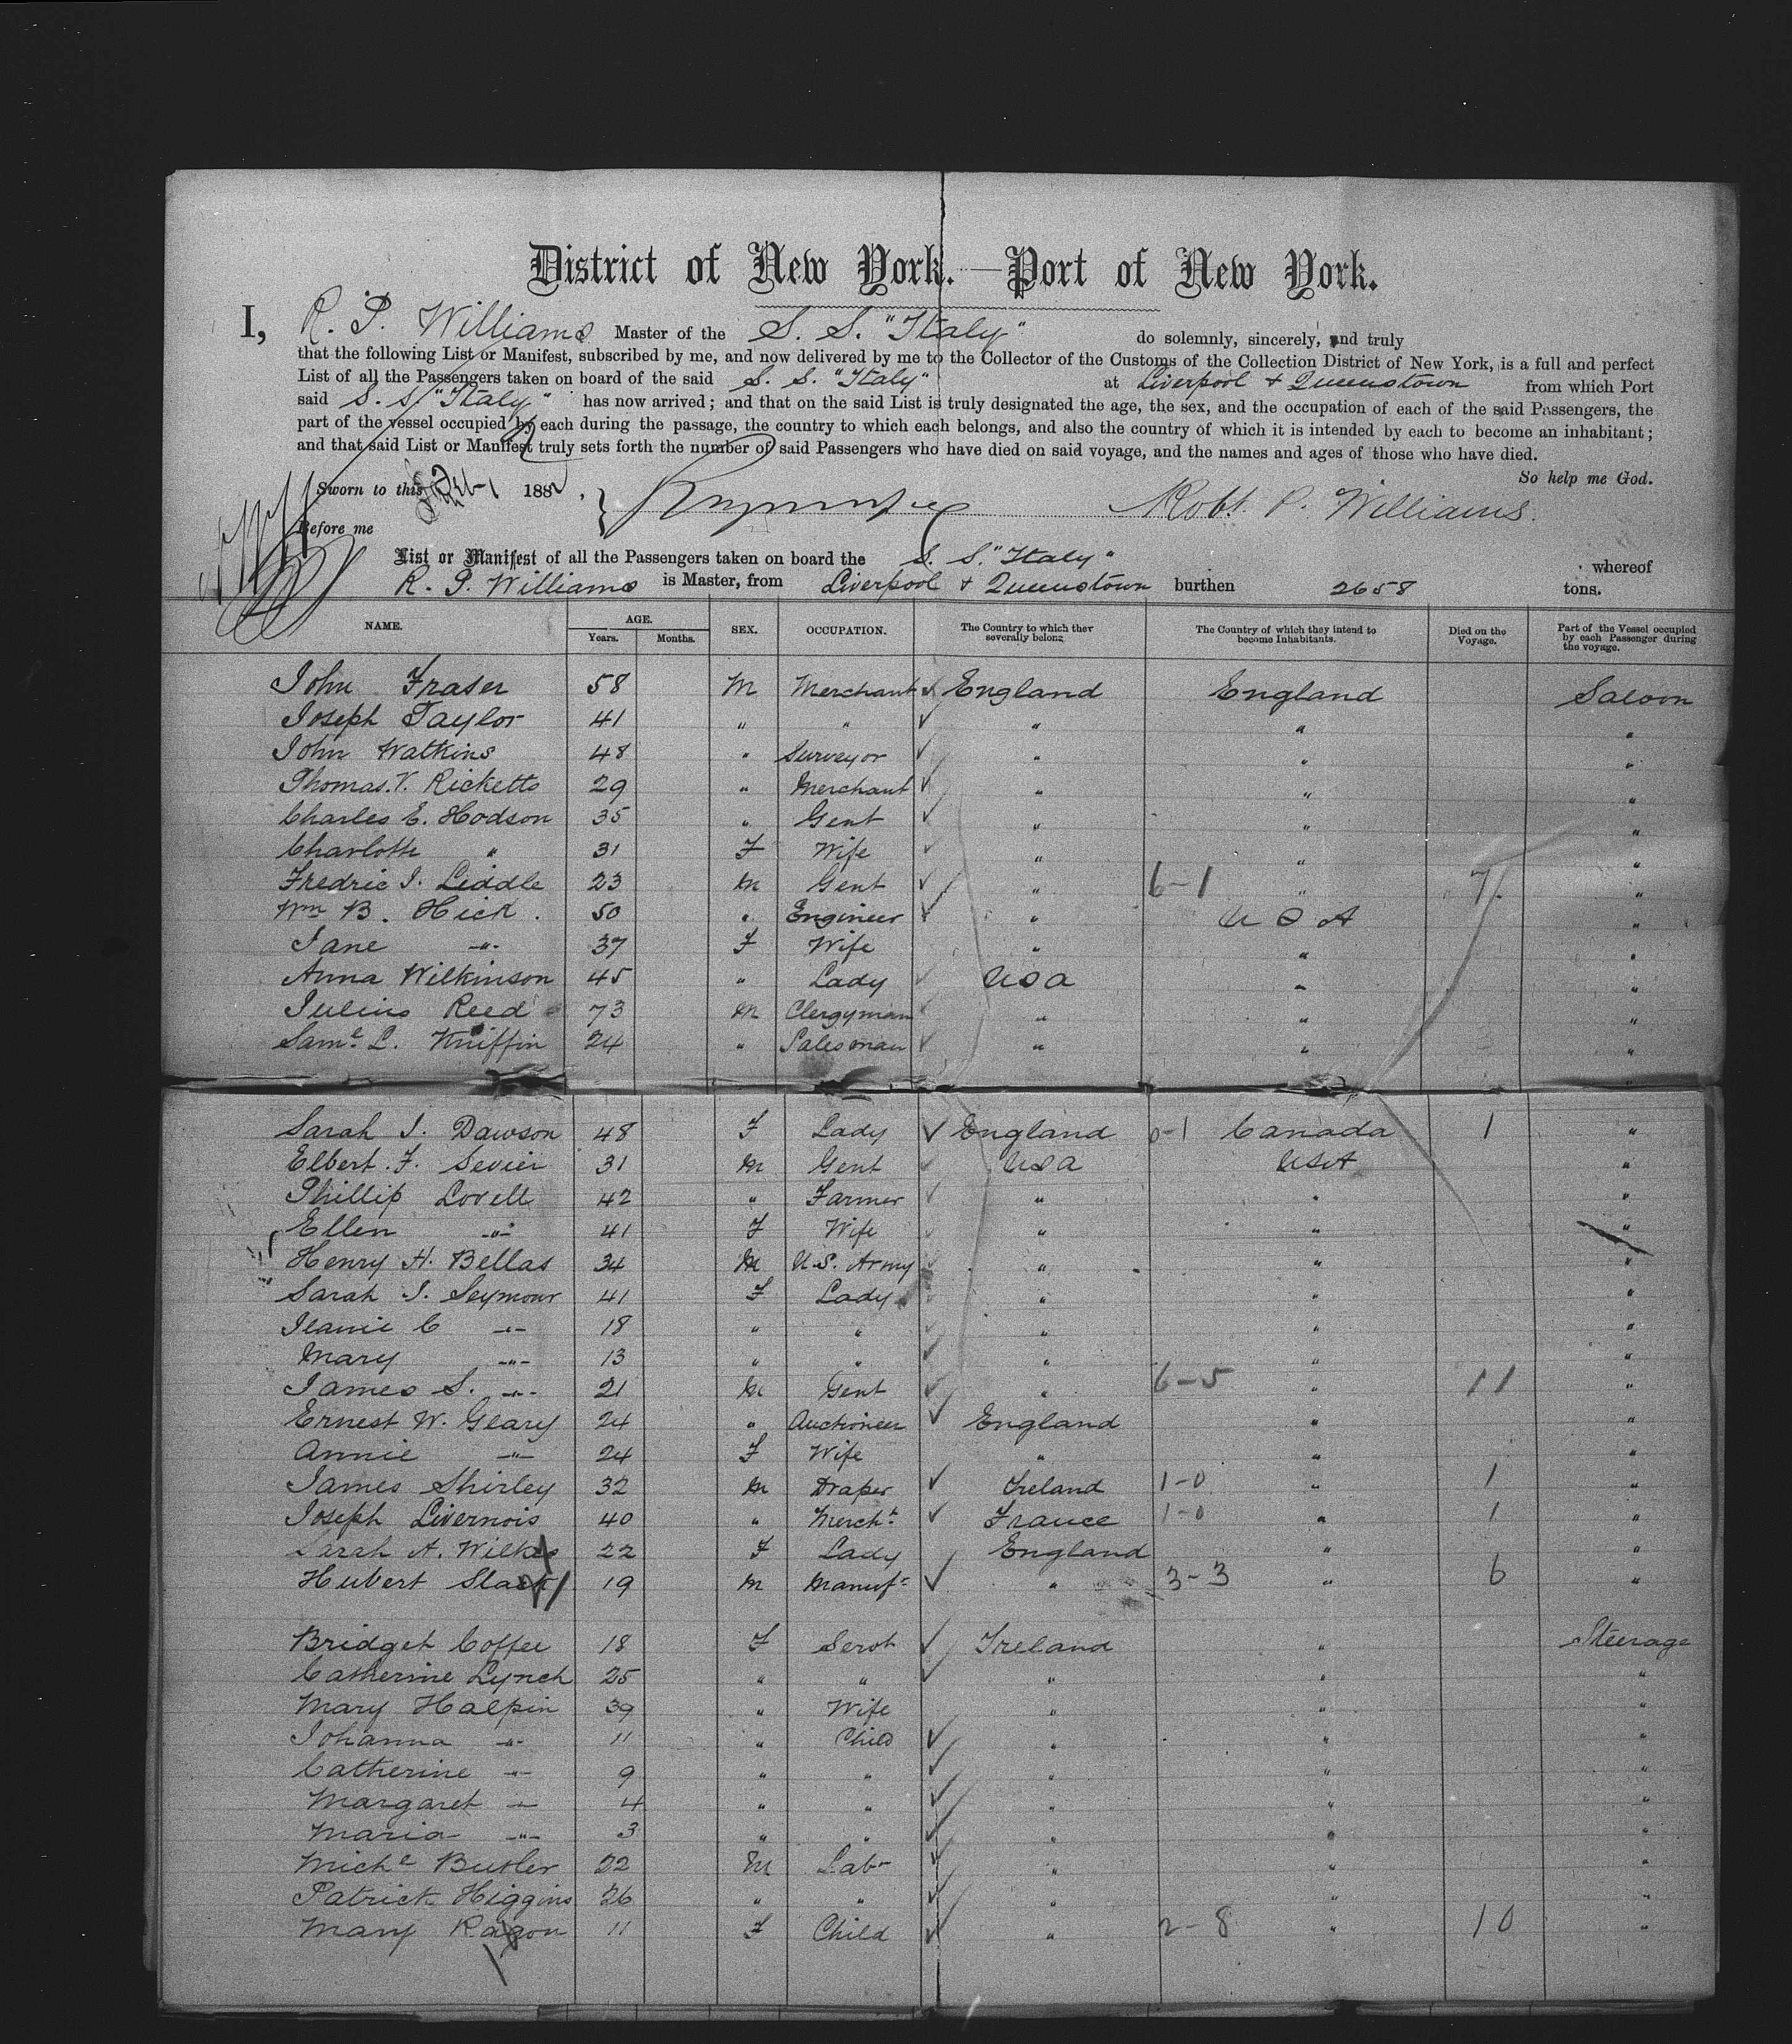 District of New York.—Port of New York.
I, R. P. Williams Master of the S. S. "Italy" do solemnly, sincerely, and truly
that the following List or Manifest, subscribed by me, and now delivered by me to the Collector of the Customs of the Collection District of New York, is a full and perfect
List of all the Passengers taken on board of the said S. S. "Italy" at Liverpool & Queenstown from which Port
said S. S. "Italy" has now arrived; and that on the said List is truly designated the age, the sex, and the occupation of each of the said Passengers, the
part of the vessel occupied by each during the passage, the country to which each belongs, and also the country of which it is intended by each to become an inhabitant;
and that said List or Manifest truly sets forth the number of said Passengers who have died on said voyage, and the names and ages of those who have died.
So help me God.
Sworn to this 1882,
Robt. P. Williams.
Before me
List or Manifest of all the Passengers taken on board the S. S. "Italy" whereof
R. P. Williams is Master, from Liverpool & Queenstown burthen 2658 tons.
NAME. AGE. Years. Months. SEX. OCCUPATION. The Country to which they severally belong. The Country of which they intend to become Inhabitants. Died on the Voyage. Part of the Vessel occupied by each Passenger during the voyage.
John Fraser 58 M Merchant England England Saloon
Joseph Taylor 41 " " " " "
John Watkins 48 " Surveyor " " "
Thomas. V. Ricketts 29 " Merchant " " "
Charles E. Hodson 35 " Gent " " "
Charlotte " 31 F Wife " " "
Fredric J. Liddle 23 M Gent " 6-1 " 7. "
Wm B. Hick. 50 " Engineer " U S A "
Jane " 37 F Wife " " "
Anna Wilkinson 45 " Lady USA " "
Julius Reed 73 M Clergyman " " "
Saml L. Kniffin 24 " Salesman " " "
Sarah J. Dawson 48 F Lady England 0-1 Canada 1 "
Elbert. F. Sevier 31 M Gent USA USA "
Phillip Lovell 42 " Farmer " " "
Ellen " 41 F Wife " " "
Henry H. Bellas 34 M U.S. Army " " "
Sarah J. Seymour 41 F Lady " " "
Jeanie C " 18 " " " " "
Mary " 13 " " " " "
James S. " 21 M Gent " 6-5 " 11 "
Ernest W. Geary 24 " Auctioneer England " "
Annie " 24 F Wife " " "
James Shirley 32 M Draper Ireland 1-0 " 1 "
Joseph Livernois 40 " Mercht France 1-0 " 1 "
Sarah A. Wilkes 22 F Lady England " "
Hubert Slack 19 M Manufr " 3-3 " 6 "
Bridget Coffee 18 F Servt Ireland " Steerage
Catherine Lynch 25 " " " " "
Mary Halpin 39 " Wife " " "
Johanna " 11 " Child " " "
Catherine " 9 " " " " "
Margaret " 4 " " " " "
Maria " 3 " " " " "
Michl Butler 22 M Labr " " "
Patrick Higgins 26 " " " " "
Mary Ragon 11 F Child " 2-8 " 10 "